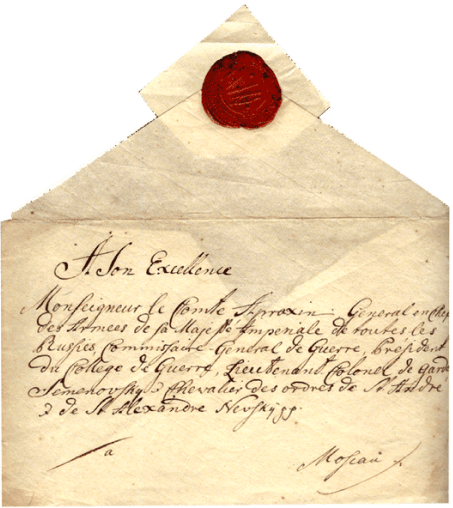 A Son Excellence
Monseigneur le Comte Apraxin General en Chef
des Armees de sa Majesté Imperiale de toutes les
Russies, Commissaire General de Guerre, President
du College de Guerre, Lieutenant Colonel de Gard
Semenovsky & Chevalier des ordres de St André
& de St Alexandre Nevsky pp.
a
Moscau